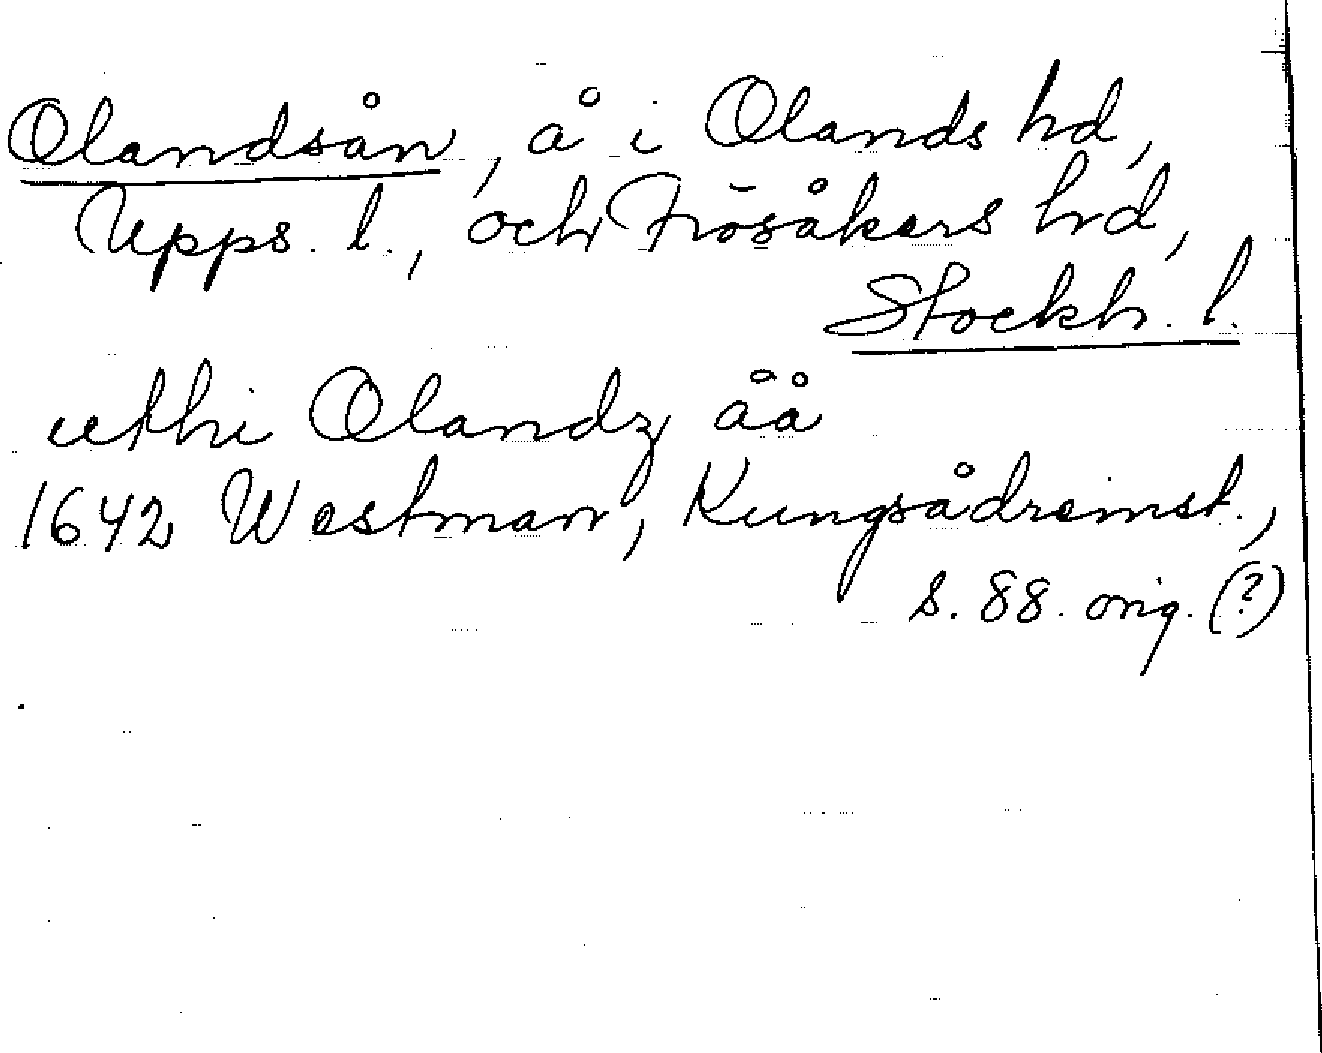 Olandsån, å i Olands hd,
Upps. l., och Frösåkers hd,
Stockh. l.
uthi Olandz åå
1642 Westman, Kungsådreinst.,
s. 88. orig. (?)